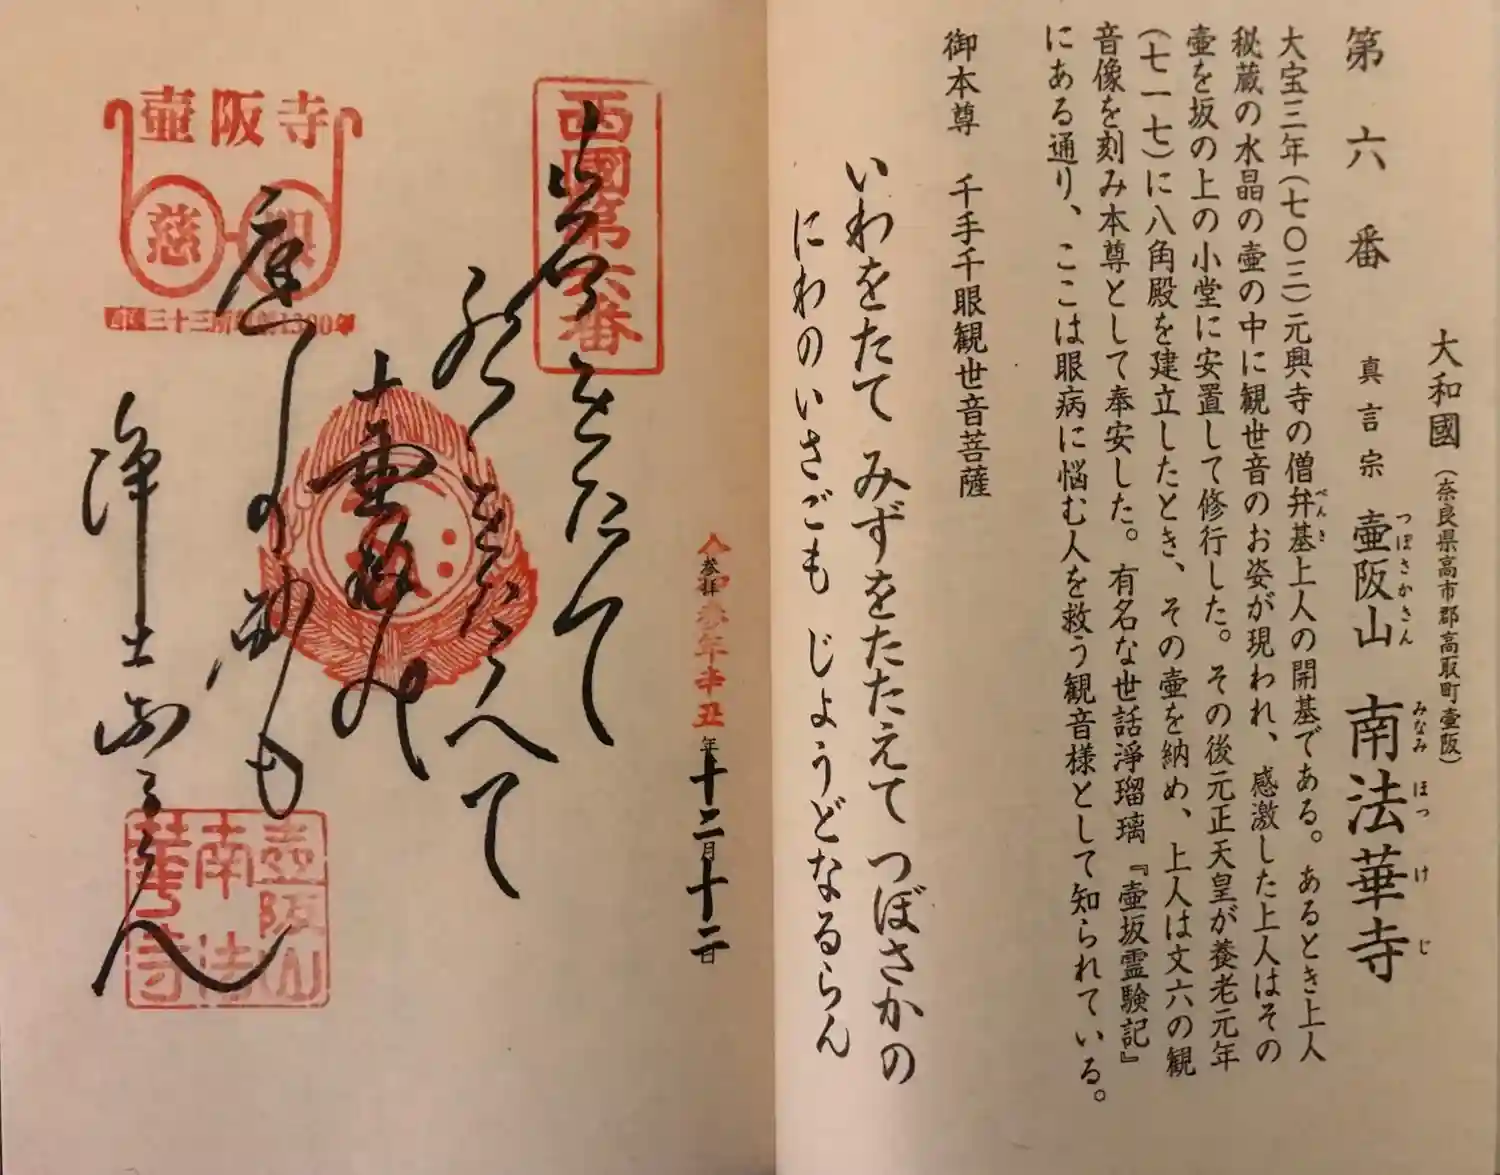 第六番
大和國（奈良県高市郡高取町壷阪）
真言宗 壷阪山 南法華寺
つぼさかさん みなみほっけじ
大宝三年（七〇三）元興寺の僧弁基上人の開基である。あるとき上人
べんき
秘蔵の水晶の壷の中に観世音のお姿が現われ、感激した上人はその
壷を坂の上の小堂に安置して修行した。その後元正天皇が養老元年
（七一七）に八角殿を建立したとき、その壷を納め、上人は丈六の観
音像を刻み本尊として奉安した。有名な世話淨瑠璃『壷坂霊験記』
にある通り、ここは眼病に悩む人を救う観音様として知られている。
御本尊 千手千眼観世音菩薩
いわをたて みずをたたえて つぼさかの
にわのいさごも じょうどなるらん
参拝 令和参年辛丑年十二月十二日
西國第六番
岩をたて
水をたたへて
壷阪の
庭の砂も
浄土なるらん
壷阪寺
慈
西国三十三所草創1300年
壷阪山
南法
華寺